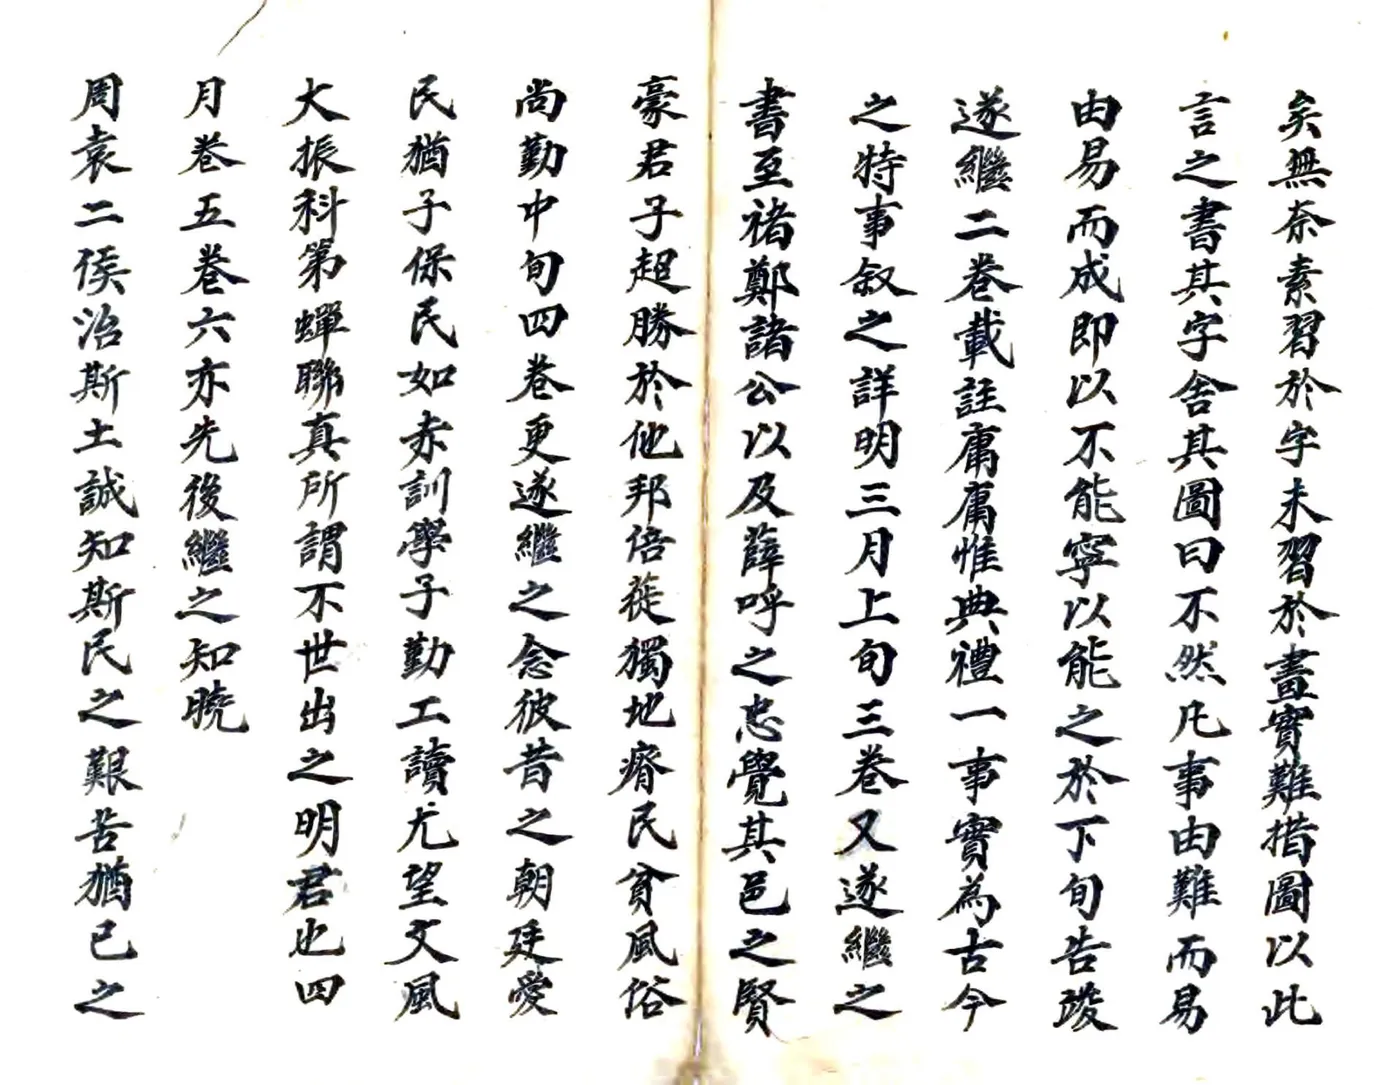 矣無奈素習於字未習於畫實難措圖以此
言之書其字舍其圖曰不然凡事由難而易
由易而成即以不能寧以能之於下旬告竣
遂繼二卷載註庸庸惟典禮一事實為古今
之特事叙之詳明三月上旬三卷又遂繼之
書至褚鄭諸公以及薛呼之忠覺其邑之賢
豪君子超勝於他邦倍蓰獨地瘠民貧風俗
尚勤中旬四卷更遂繼之念彼昔之朝廷愛
民猶子保民如赤訓學子勤工讀尤望文風
大振科第蟬聯真所謂不世出之明君也四
月卷五卷六亦先後繼之知曉
周袁二侯治斯土誠知斯民之艱苦猶已之